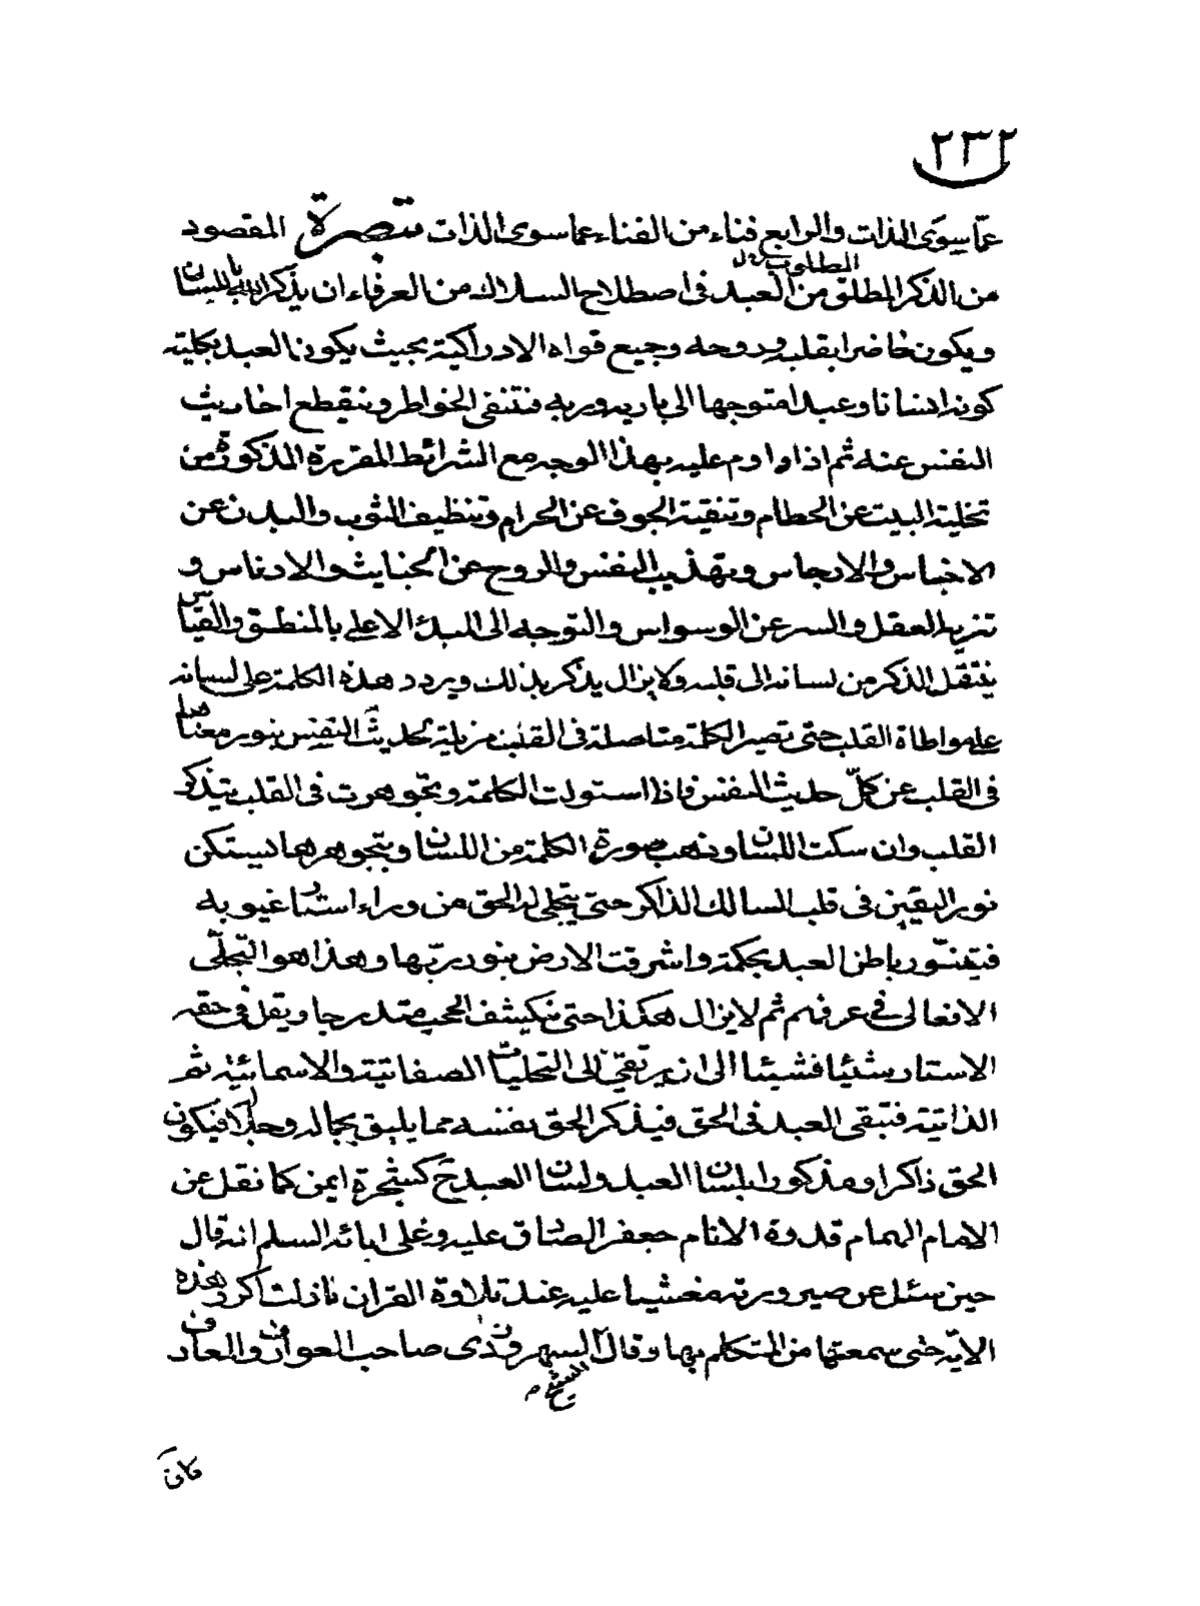 ٢٣٢
عمّا سوى الذات والرابع فناء من الفناء عما سوى الذات تبصرة المقصود
المطلوب
من الذكر المطلق من العبد فى اصطلاح السلاك من العرفاء ان يذكر باللسان
ويكون حاضرا بقلبه وروحه وجميع قواه الادراكية بحيث يكون العبد بكليته
كونه انسانا وعبدا متوجها الى باريه وربه فتنتفى الخواطر وينقطع احاديث
النفس عنه ثم اذا داوم عليه بهذا الوجه مع الشرائط المقررة المذكورة من
تخلية البيت عن الحطام وتنقية الجوف عن الحرام وتنظيف الثوب والبدن عن
الاخباس والارجاس وتهذيب النفس والروح عن الخبايث والادناس و
تنزيه العقل والسر عن الوسواس والتوجه الى المبدء الاعلى بالمنطق والقياس
ينتقل الذكر من لسانه الى قلبه ولا يزال يذكر بذلك ويردد هذه الكلمة على لسانه
على مواطاة القلب حتى تصير الكلمة متاصلة فى القلب مزيلة لحديث النفس ينوب معناها
فى القلب عن كلّ حديث النفس فاذا استولت الكلمة وتجوهرت فى القلب يتذكر
القلب وان سكت اللسان وذهب صورة الكلمة من اللسان وبتجوهرها يستكن
نور اليقين فى قلب السالك الذاكر حتى يتجلى له الحق من وراء استار غيوبه
فيتنوّر باطن العبد بحكمة واشرقت الارض بنور ربّها وهذا هو التجلّى
الافعالى فى عرفهم ثم لا يزال هكذا حتى ينكشف الحجب متدرجا ويقل فى حقه
الاستار شيئا فشيئا الى ان يرتقى الى التجليات الصفاتية والاسمائية ثم
الذاتية فتبقى العبد فى الحق فيذكر الحق بنفسه مما يليق بجماله وجلاله فيكون
الحق ذاكرا ومذكورا بلسان العبد ولسان العبد ح كشجرة ايمن كما نقل عن
الامام الهمام قدوة الانام جعفر الصادق عليه وعلى ابائه السلم انه قال
حين سئل عن صيرورته مغشيا عليه عند تلاوة القران ما زلت اكرر هذه
الاية حتى سمعتها من المتكلم بها وقال السهروردى صاحب العوارف والمعارف
الشيخ م
كان